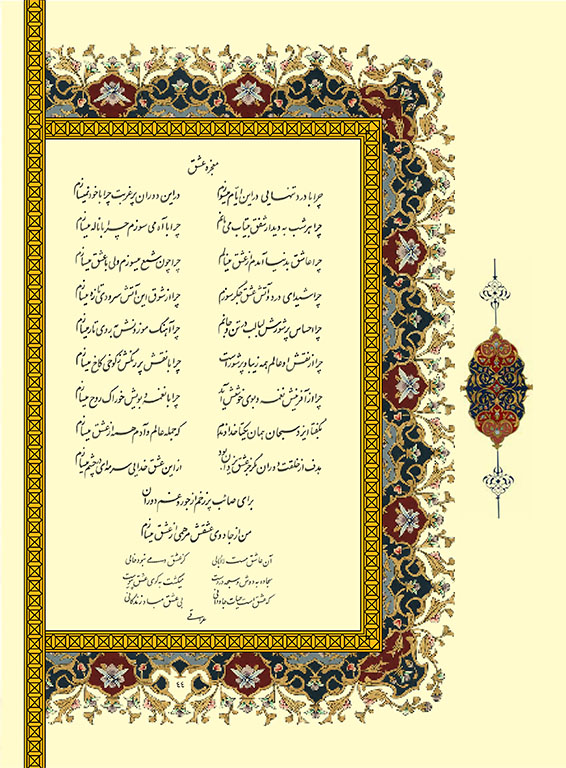 معجزه عشق
چرا با درد تنهایی در این ایام میسوزم در این دوران پر غربت چرا با خود نمیسازم
چرا هر شب به دیدار شفق بیتاب می‌مانم چرا با آدمی سوزم چرا با ناله میسازم
چرا عاشق به دنیا آمدم از عشق مینالم چرا چون شمع میسوزم ولی با عشق میسازم
چرا شیدای درد و آتش عشق جگر سوزم چرا از شوق این آتش سرودی تازه میسازم
چرا احساس پر شورش لبالب در تن و جانم چرا آهنگ موزونش به روی تار میسازم
چرا از نقش و عالم همه زیبا و پر شور است چرا با نقش پر رنگش کاخ میسازم
چرا از آفرینش نغمه و بوی خوشش آید چرا با نغمه و بویش خوراک روح میسازم
بگفتا ایزد سبحان همان یکتا خداوندم که جمله عالم و آدم همه از عشق میسازم
هدف از خلقت دوران مگر جز عشق بود از این عشق خدایی سرمه‌ای در چشم میسازم
برای صائب پر زخم از جور و غم دوران
من از جادوی عشقش مرهمی از عشق میسازم
آن عاشق مست لاابالی کز عشق دمی نبود خالی
سجاده به دوش و سبحه در دست میگشت به کوی عشق پیوست
که عشق است حیات جاودانی بی عشق مباد زندگانی
٤٤